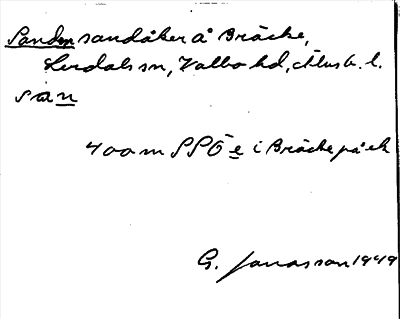 Sanden sandåker å Bräcke,
Lerdals sn, Valbo hd, Älvsb. l.
san
400 m SSÖ e i Bräcke på ek
G. Jonasson 1949